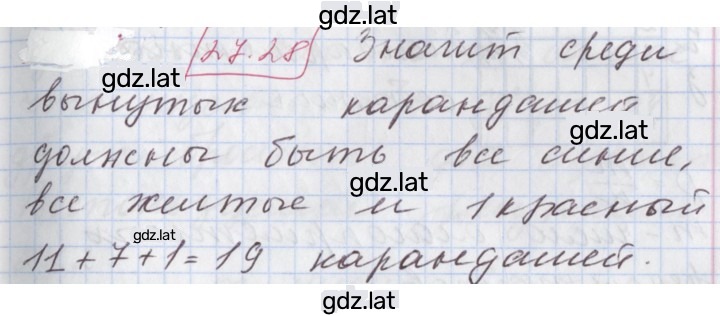 gdz.lat
27.28 Значит среди
gdz.lat
вынутых карандашей
gdz.lat
должны быть все синие,
gdz.lat
все желтые и 1 красный
gdz.lat
11 + 7 + 1 = 19 карандашей.
gdz.lat